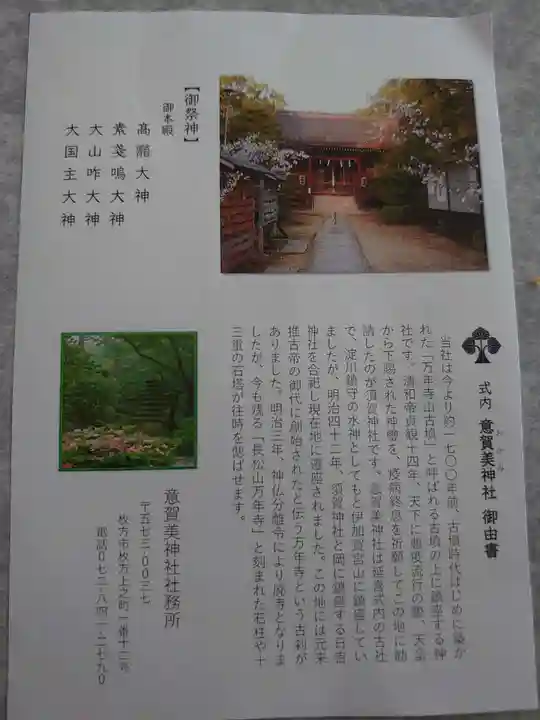 式内 意賀美神社 御由書
おかみ
当社は今より約一七〇〇年前、古墳時代はじめに築か
れた「万年寺山古墳」と呼ばれる古墳の上に鎮座する神
社です。清和帝貞観十四年、天下に疫流行の際、天皇
から下賜された神璽を、疫病終息を祈願してこの地に勧
請したのが須賀神社です。意賀美神社は延喜式内の古社
で、淀川鎮守の水神としてもと伊加賀宮山に鎮座してい
ましたが、明治四十二年、須賀神社と岡に鎮座する日吉
神社を合祀し現在地に遷座されました。この地には元来
推古帝の御代に創始されたと伝う万年寺という古刹が
ありました。明治三年、神仏分離令により廃寺となりま
したが、今も残る「長松山万年寺」と刻まれた石柱や十
三重の石塔が往時を偲ばせます。
【御祭神】
御本殿
高龗大神
素戔嗚大神
大山咋大神
大国主大神
意賀美神社社務所
〒五七三-〇〇三七
枚方市枚方上之町一番十二号
電話〇七二-八四一-二七九〇